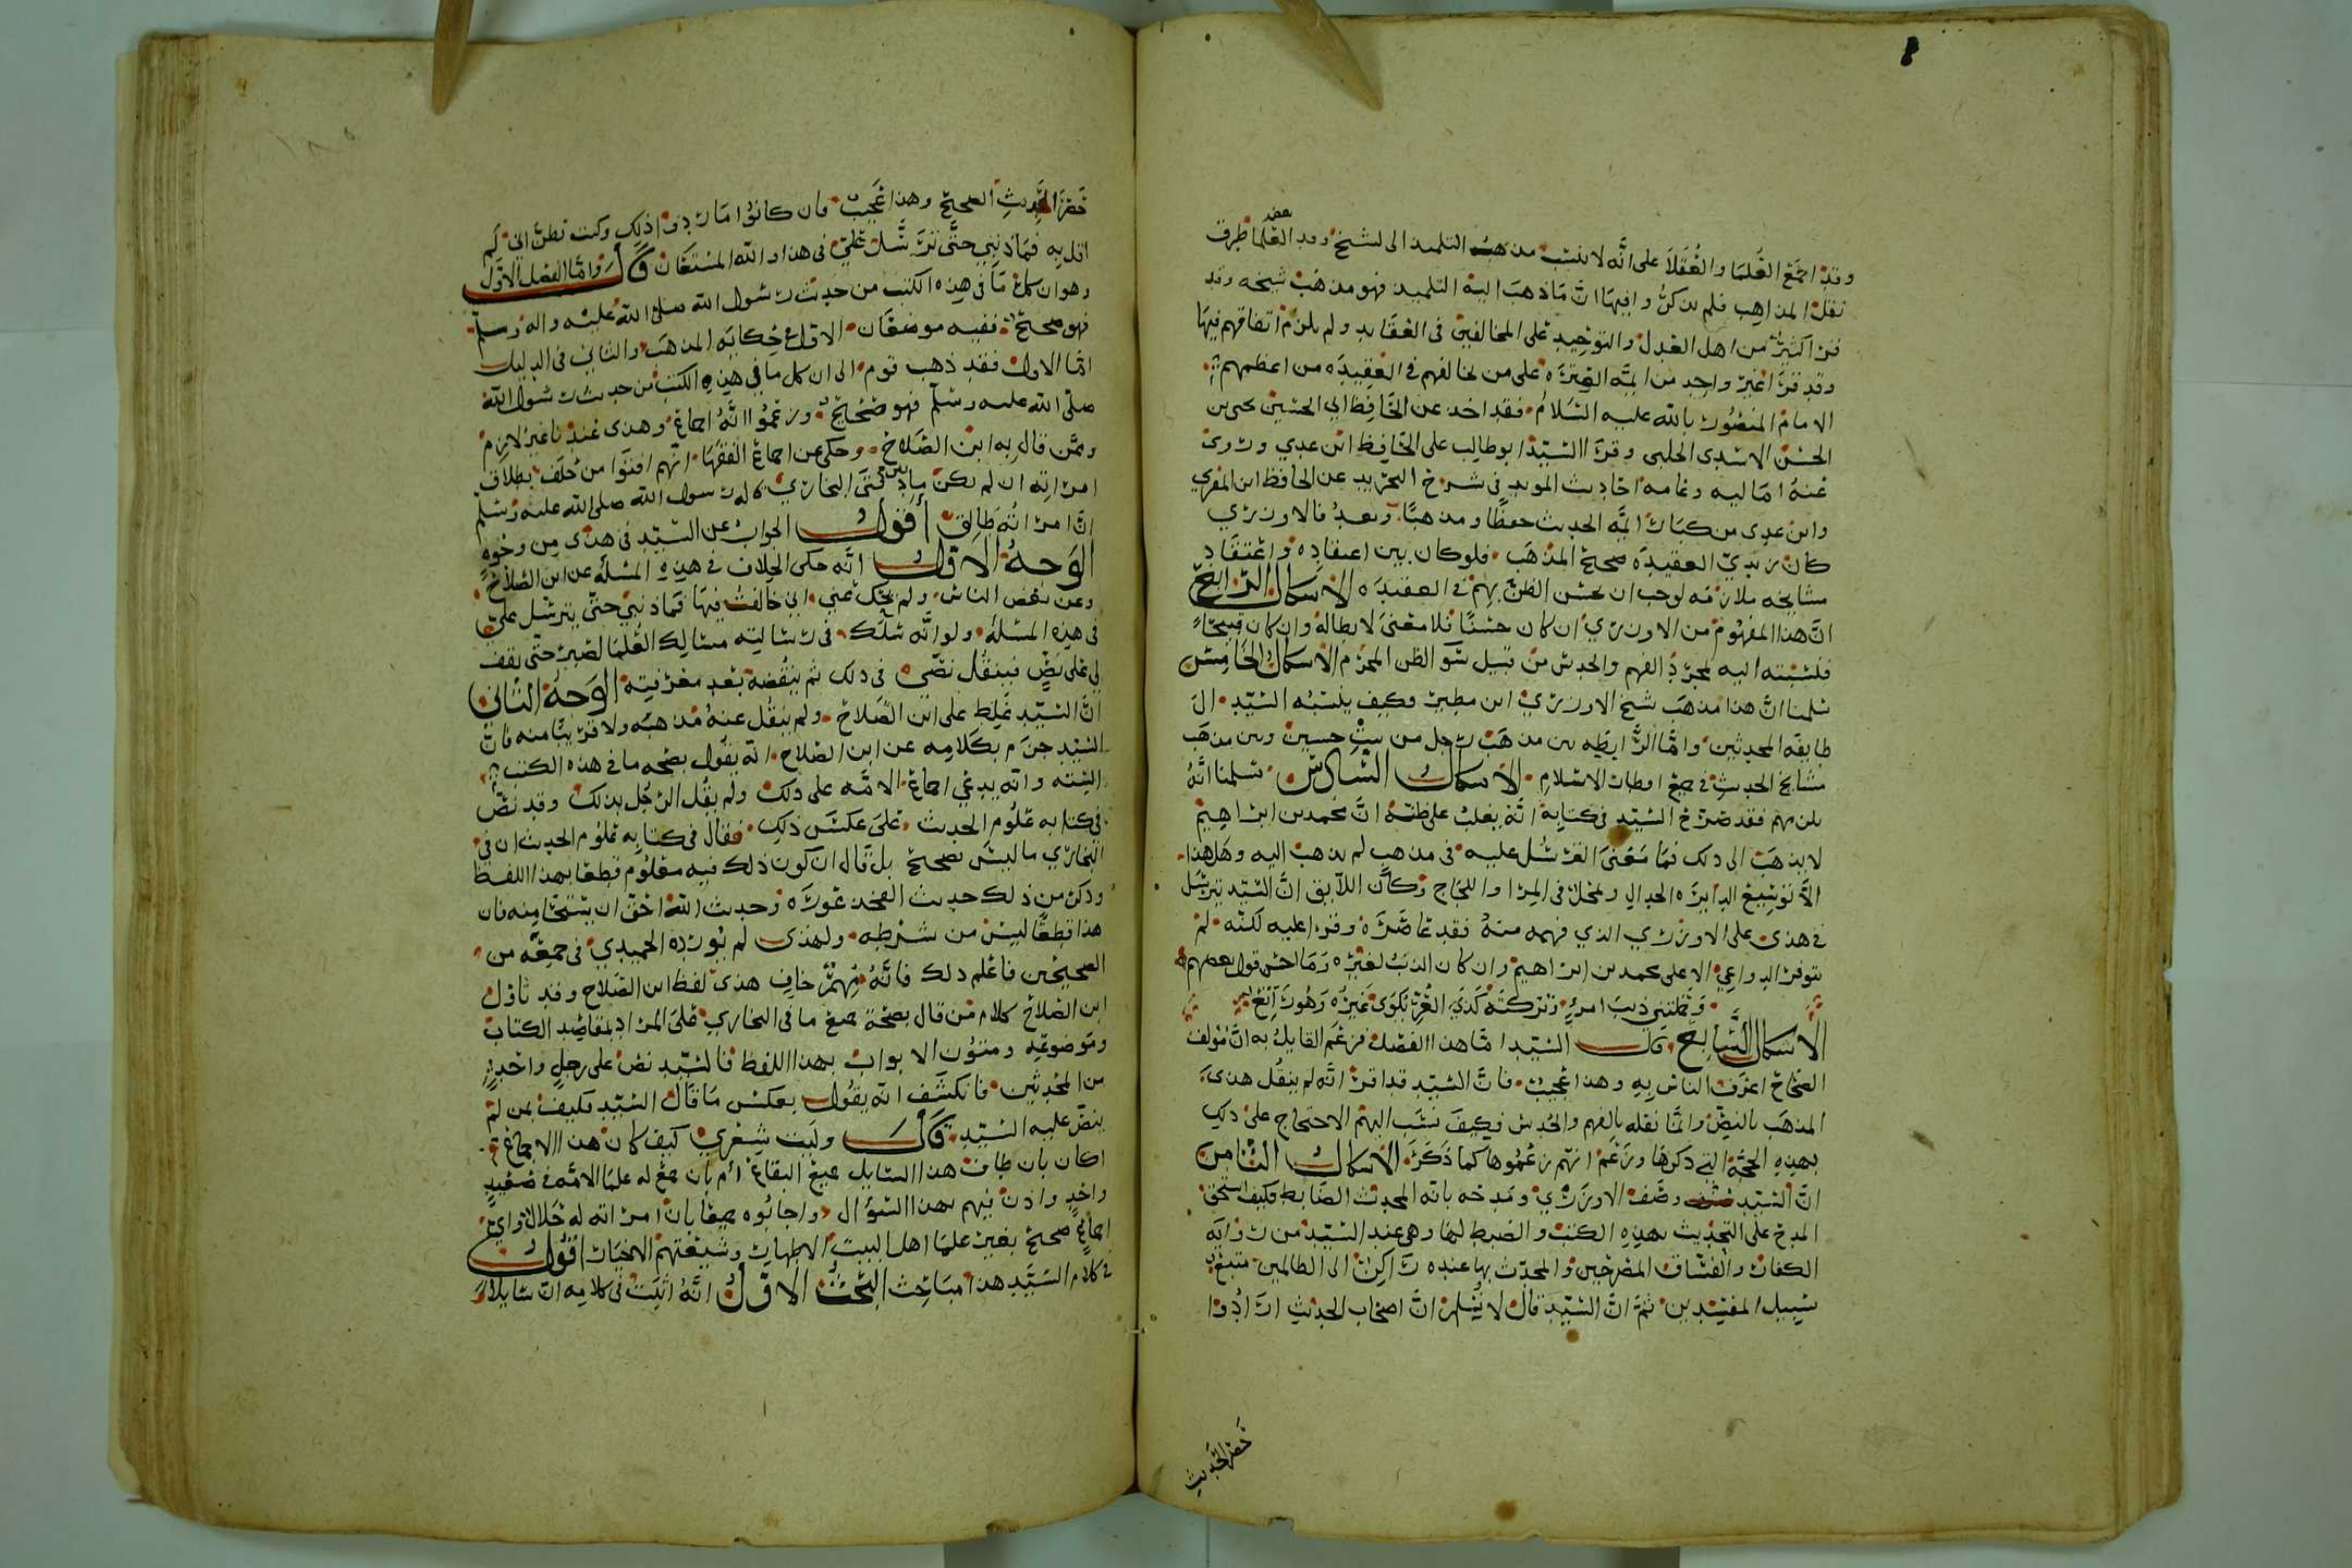 وقد اجمع العُلما والعُقلا على انَّه لا ينسب مذهب التلميذ الى الشيخ وقد بعض العلما طرق
نقل المذاهب فلم يذكروا فيها انَّ ما ذهب اليه التلميذ فهو مذهب شيخه وقد
قرا كثير من اهل العدل والتوحيد على المخالفين في العقايد ولم يلزم اتفاقهم فيها
وقد قرا غير واحد من ايمَّه العترَه على من خالفهم في العقيدَه من اعظمهم
الامام المنصور بالله عليه السّلام فقد اخذ عن الحافظ ابي الحسين يحيى بن
الحسن الاسدى الحلبى وقرا السّيّد ابو طالب على الحافظ ابن عدي وروى
عنهُ اماليه وعامه احاديث المويد في شرح التجريد عن الحافظ ابن المقري
وابن عدى من كبار ايمَّه الحديث حفظًا ومذهبًا وبعد فالاوزري
كان زيديّ العقيدَه صحيح المذهب فلو كان بين اعتقاده واعتقاد
مشايخه ملازمه لوجب ان يحسن الظن بهم في العقيدَه الاشكال الرّابع
انَّ هذا المفهوم من الاوزري ان كان حسنًا فلا معنى لابطاله وان كان قبيحًا
فلنسبته اليه بمجرّد الفهم والحدس من قبيل سو الظن المحرّم الاشكال الخامس
سلمنا انَّ هذا مذهب شيخ الاوزري ابن مطير وكيف ينسبه السّيّد الى
طايفه المحدثين وامّا الرَّابطه بين مذهب رجل من بيت حسين وبين مذهب
مشايخ الحديث في جميع اوطان الاسلام الاشكال السّادس سلمنا انَّهُ
يلزمهم فقد صرّح السّيّد في كتابه انَّه يغلب على ظنّه انَّ محمد بن ابراهيم
لا يذهب الى ذلك فما معنى الترسُّل عليه في مذهب لم يذهب اليه وهل هذا
الاَّ توسيع لدايرَه الجدال ومحل في المرا واللجاج وكان اللايق انَّ السّيّد يترسّل
في هذى على الاوزري الذي فهمه منهُ فقد عاصَرَه وقرا عليه لكنّه لم
تتوفر الدواعي الا على محمد بن ابراهيم وان كان الذنب لغيره وما احسن قول بعضهم
وحمّلتني ذنب امرءٍ وتركته كذي العُرّ يُكوى غيره وهو راتع
الاشكال السَّابع قال السّيّد امّا هذا الفصل فزعم القايل به انَّ مؤلف
الصّحاح اعرف الناس به وهذا عجيب فانَّ السّيّد قد اقرّ انَّه لم ينقل هذى
المذهب بالنصّ وانّما نقله بالفهم والحدس فكيف نسب اليهم الاحتجاج على ذلك
بهذه الحجّه التي ذكرها وزعم انهم زعموها كما ذكر الاشكال الثّامن
انَّ السّيّد وصَف الاوزري ومدحه بانه المحدث الضّابط فكيف استحق
المدح على التحديث بهذه الكتب والضبط لها وهي عند السّيّد من روايه
الكفار والفسّاق المصرّحين والمحدّث بها عنده راكن الى الظالمين متبع
سبيل المفسدين ثمّ انَّ السّيّد قال لا نُسلم انَّ اصحاب الحديث ارادوا
حَصْر الحديث
حَصْرَ الحَديث الصحيح وهذا عجيب فان كانوا ما ارادوا ذلك وكنت تظنّ اني لم
اقل به فما ذنبي حتَّى تترسَّل عليّ في هذا والله المستعان قال وامّا الفصل الاوّل
وهو ان كلما في هذه الكتب من حديث رسول الله صلى الله عليه واله وسلم
فهو صحيح ففيه موضعان الاول في حكايه المذهب والثاني في الدليل
امّا الاول فقد ذهب قوم الى ان كل ما في هذه الكتب من حديث رسول الله
صلى الله عليه وسلم فهو صحيح وزعموا انَّهُ اجماع وهذى عندنا غير لازم
وممَّن قال به ابن الصّلاح وحكى عن اجماع الفقها انهم افتوا من حلف بطلاق
امراته ان لم يكن ما بين دفتى البخاري قاله رسول الله صلى الله عليه وسلم
انَّ امراته طالق أقول الجواب عن السّيّد في هذى من وجوهٍ
الوَجهُ الاوّل انَّه حكى الخلاف في هذه المسله عن ابن الصّلاح
وعن بعض الناس ولم يحك عني اني خالفت فيها فما ذنبي حتى يترسّل عليّ
في هذه المسله ولو انَّه سَلَك في رسالته مسالك العلما لصبر حتَّى يقف
لي على نصٍّ فينقل نصّي في ذلك ثم ينقضه بعد معرفته الوَجهُ الثّاني
انَّ السّيّد غلط على ابن الصّلاح ولم ينقل عنهُ مذهبه ولا قريبًا منه فانَّ
السّيّد جزم بكلامه عن ابن الصلاح انّه يقول بصحّه ما في هذه الكتب
السّته وانه يدعي اجماع الامّه على ذلك ولم يقُل الرّجُل بذلك وقد نصَّ
في كتابه علوم الحديث على عكس ذلك فقال في كتابه علوم الحديث ان في
البخاري ما ليس بصحيح بل قال ان كون ذلك فيه معلوم قطعًا بهذا اللفظ
وذكر من ذلك حديث الفخذ عورَه وحديث الله احق ان يستحيا منه فان
هذا قطعًا ليس من شرطه ولهذى لم يُورده الحميدي في جمعه من
الصحيحين فاعلم ذلك فانَّه مُهمّ خافٍ هذى لفظ ابن الصّلاح وقد تاوّل
ابن الصّلاح كلام من قال بصحّة جميع ما في البخاري على المراد بمقاصد الكتاب
وموضوعه ومتون الابواب بهذا اللفظ فالسّيّد نصّ على رجلٍ واحدٍ
من المحدثين فانكشف انّه يقول بعكس ما قال السّيّد فكيف بمن لم
ينصّ عليه السّيّد قال وليت شعري كيف كان هذا الاجماع
اكان بان طاف هذا السّايل جميع البقاع أم بان جمع له علما الامّه في صعيدٍ
واحدٍ واذن فيهم بهذا السّؤال واجابُوه جميعًا بان امراته له حَلال واي
اجماعٍ صحيح بغير علما اهل البيت الاطهار وشيعتهم الاخيار اقول
في كلام السّيّد هذا مباحِث البَحْثُ الاوّلُ انَّهُ اثبت في كلامه انَّ سايلًا